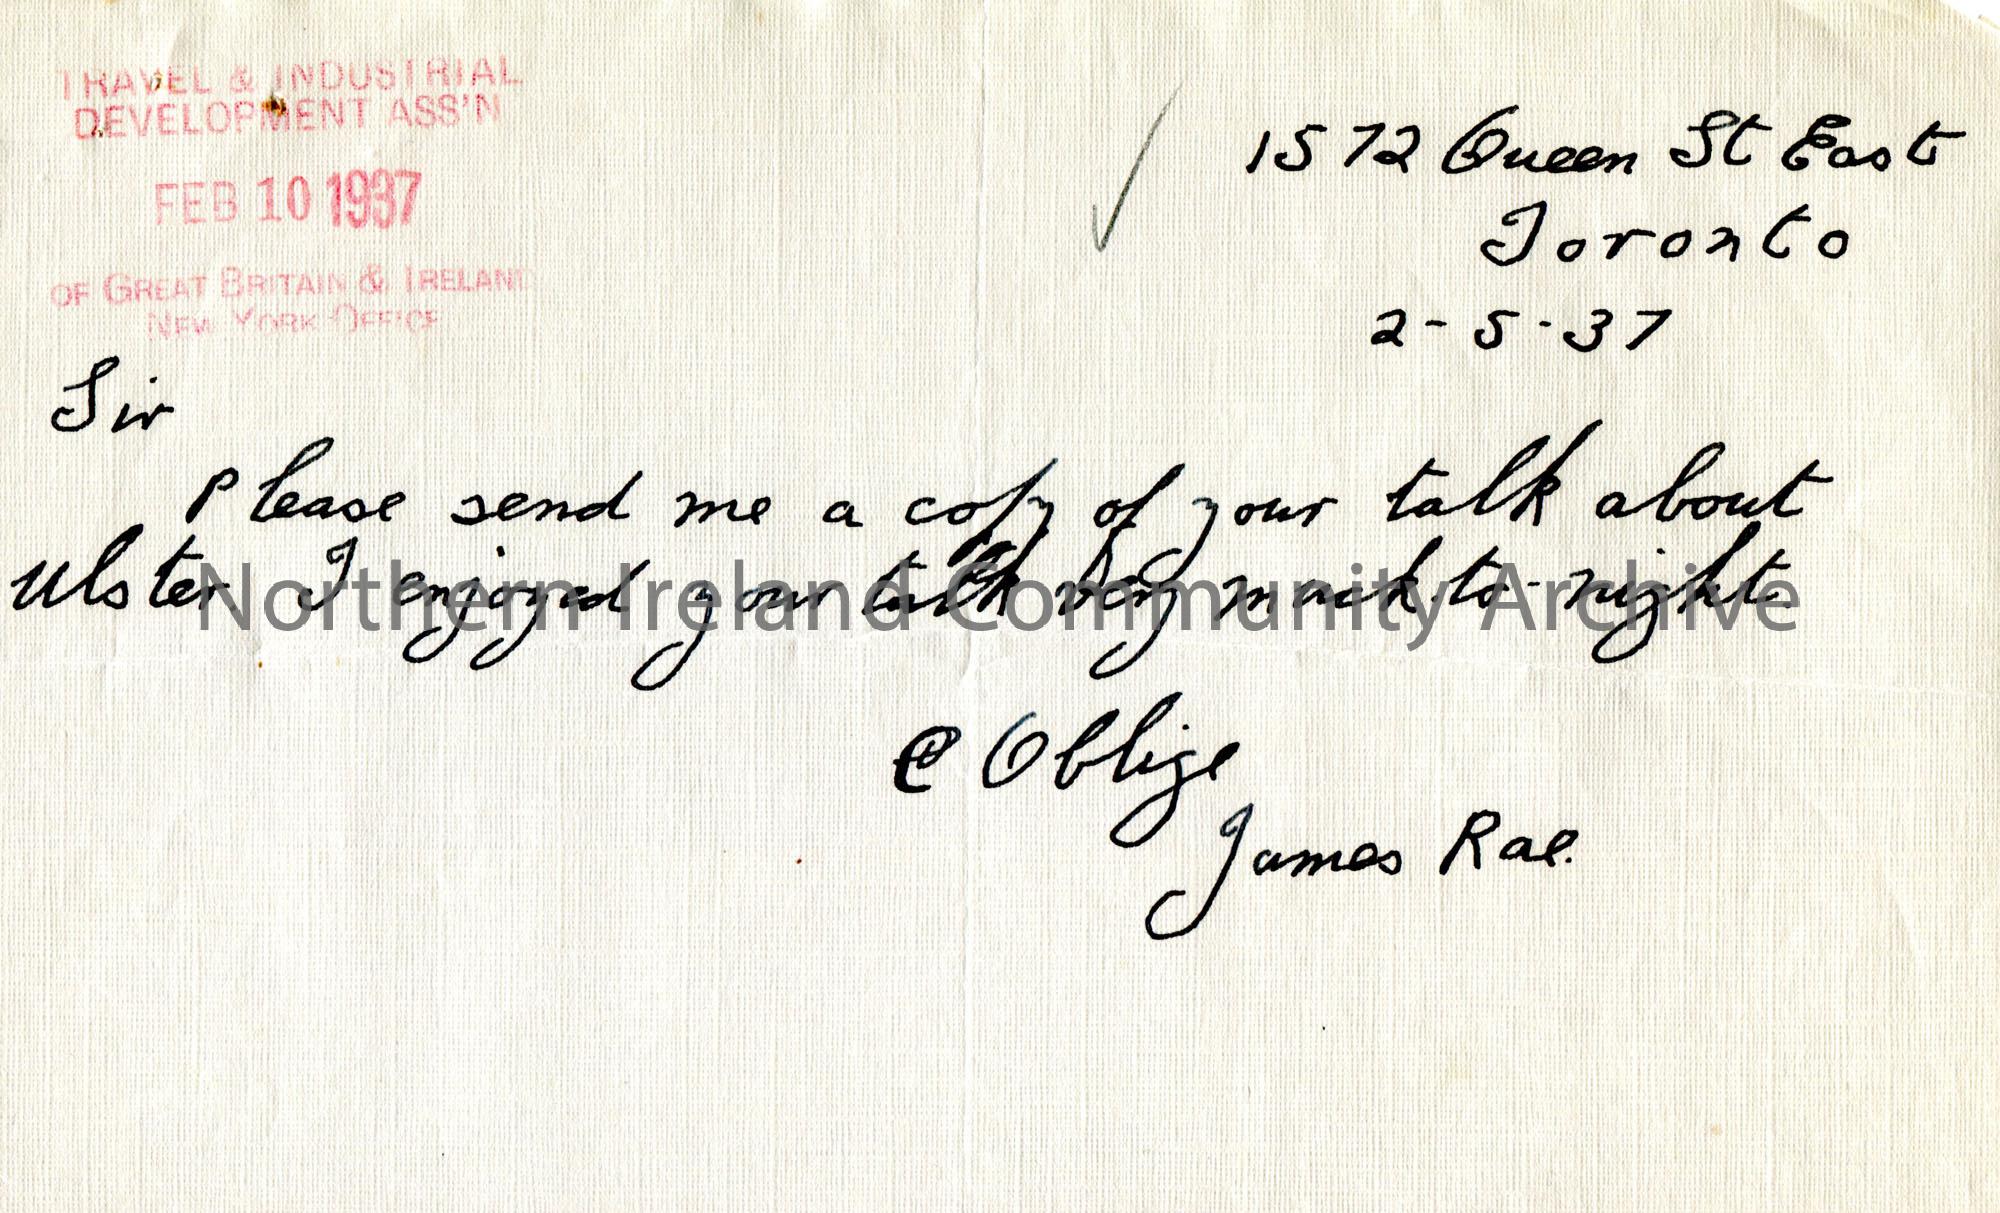 TRAVEL & INDUSTRIAL
DEVELOPMENT ASS'N
FEB 10 1937
OF GREAT BRITAIN & IRELAND
NEW YORK OFFICE
1572 Queen St East
Toronto
2-5-37
Sir
Please send me a copy of your talk about
Ulster I enjoyed your talk very much to-night.
Oblige
James Rae.
Northern Ireland Community Archive